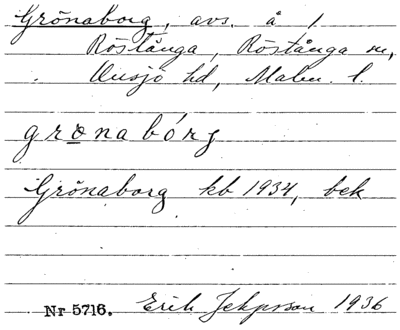 Grönaborg, avs. å 1
Röstånga, Röstånga sn,
Onsjö hd, Malm. l.
gro̲nabórg
Grönaborg kb 1934, bek
Nr 5716. Erik Jeppsson 1936